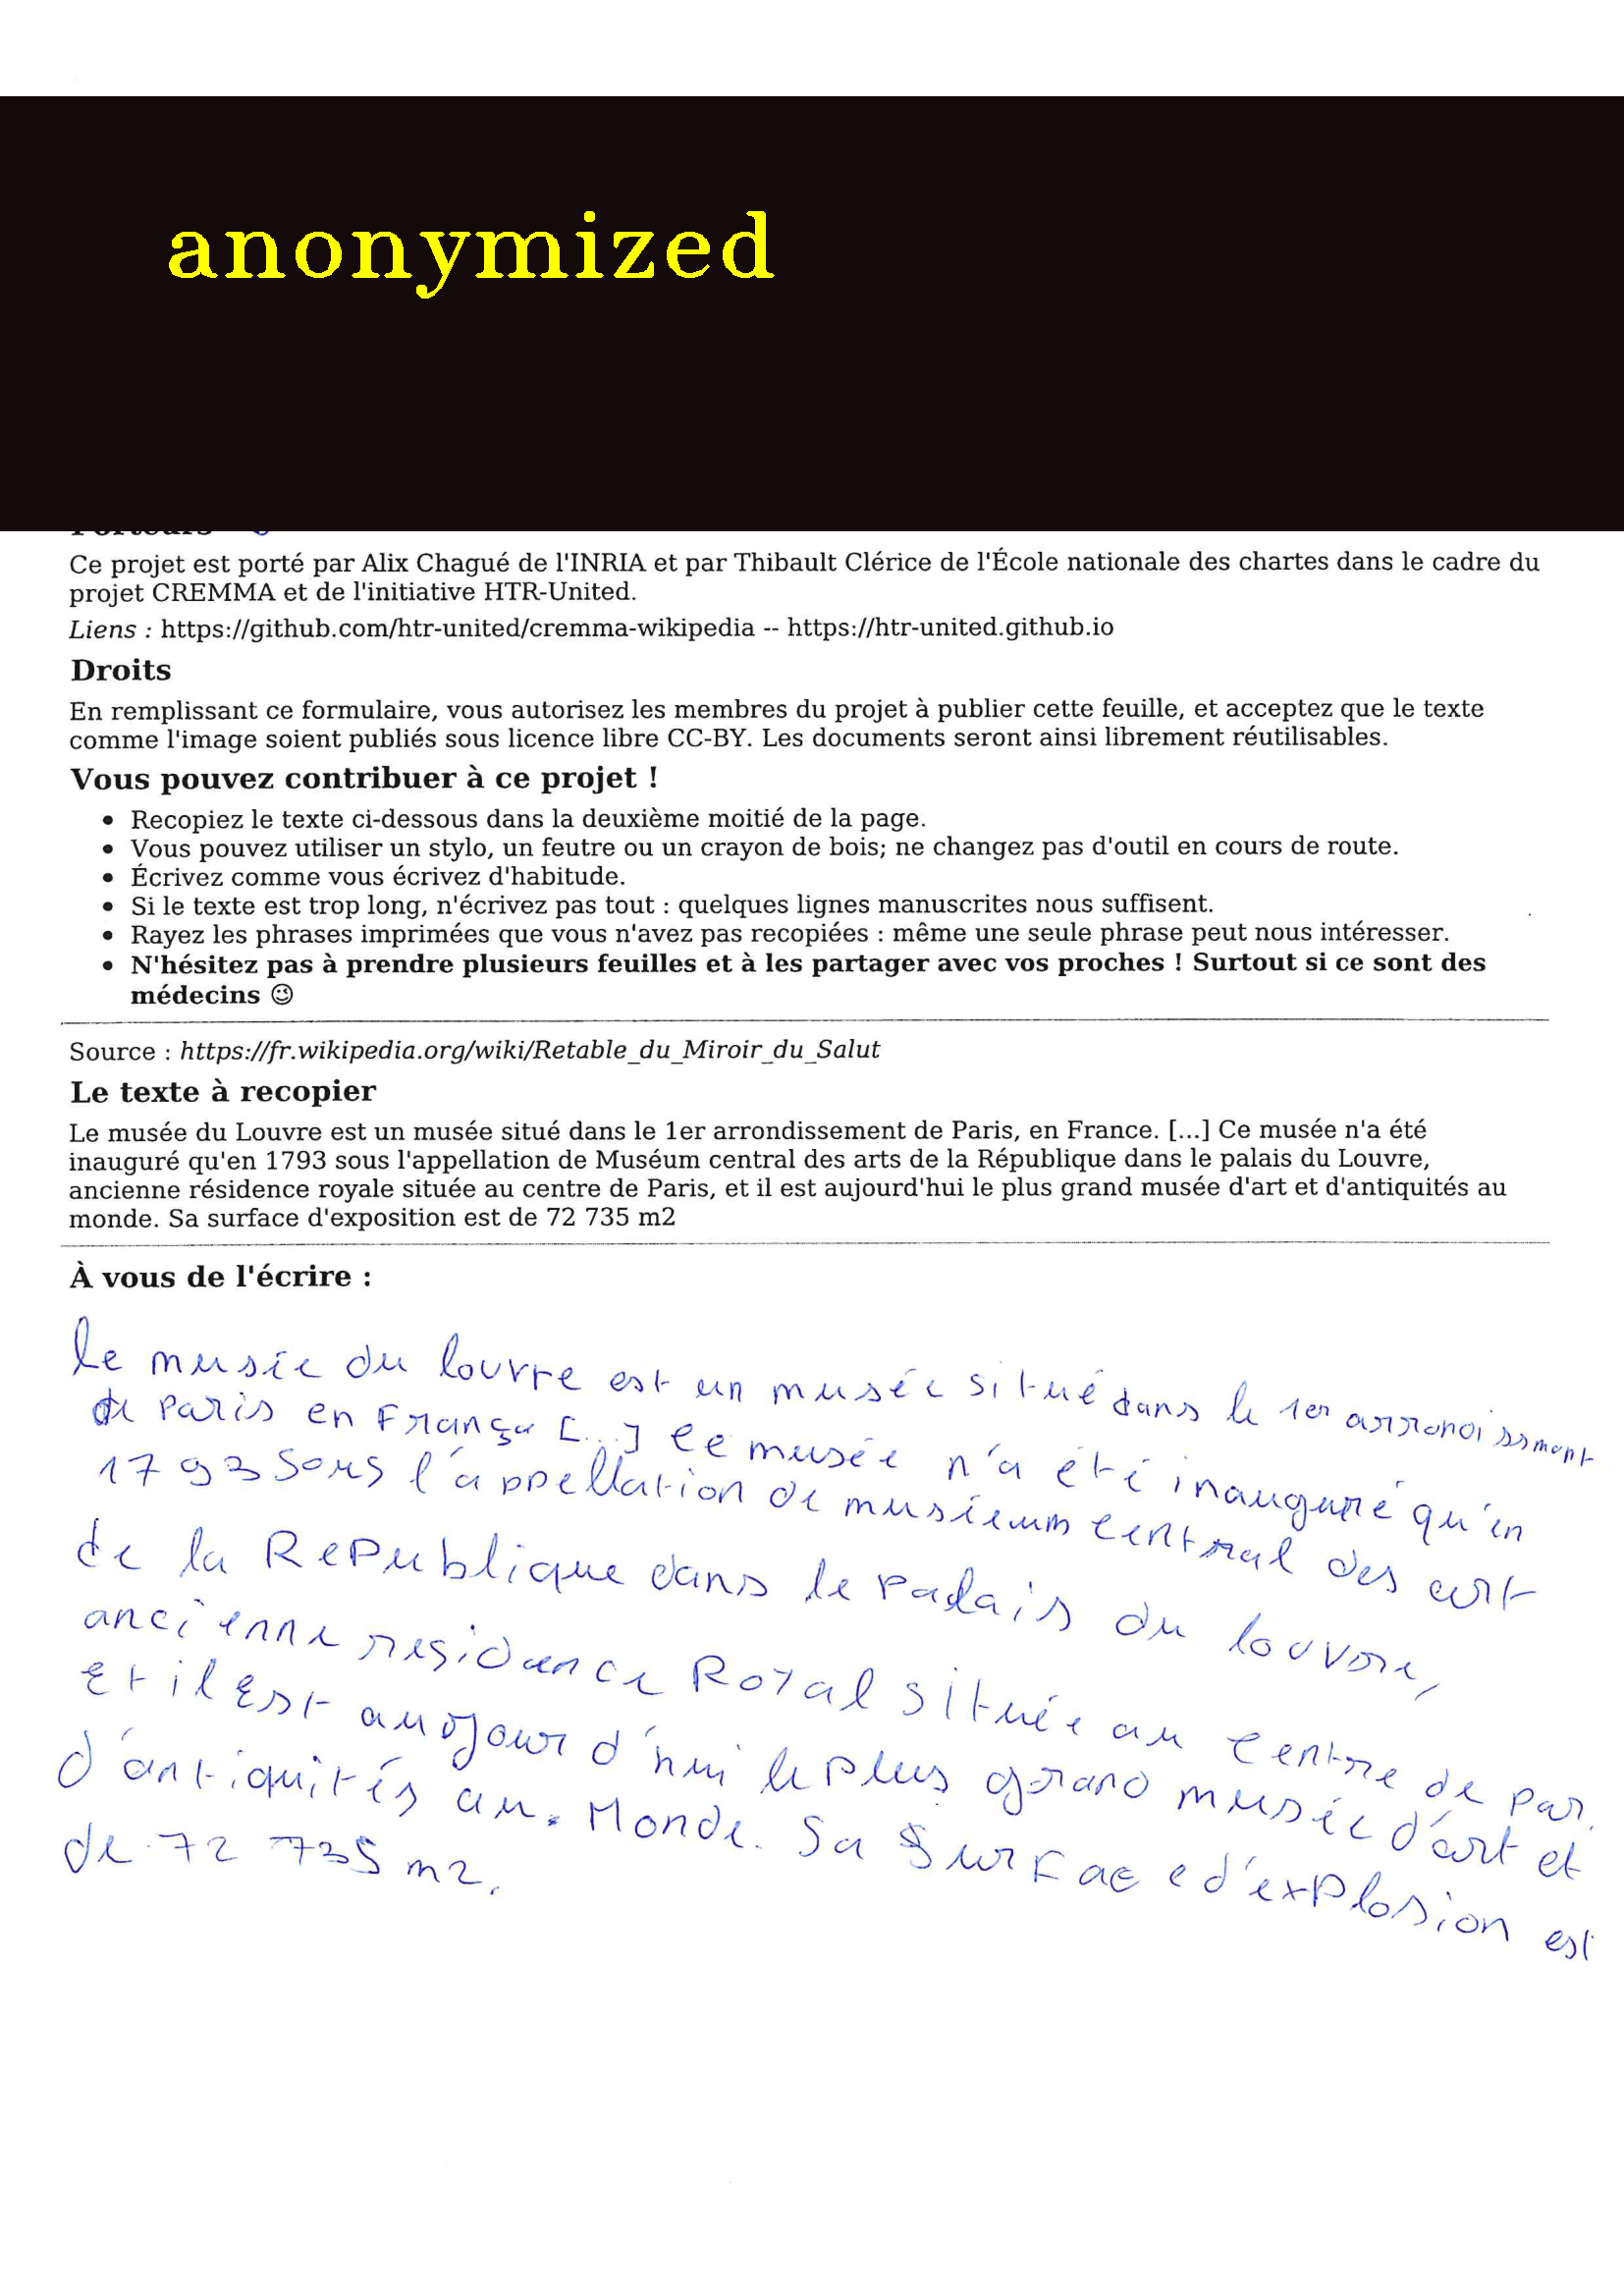 anonymized
Ce projet est porté par Alix Chagué de l'INRIA et par Thibault Clérice de l'École nationale des chartes dans le cadre du
projet CREMMA et de l'initiative HTR-United.
Liens : https://github.com/htr-united/cremma-wikipedia -- https://htr-united.github.io
Droits
En remplissant ce formulaire, vous autorisez les membres du projet à publier cette feuille, et acceptez que le texte
comme l'image soient publiés sous licence libre CC-BY. Les documents seront ainsi librement réutilisables.
Vous pouvez contribuer à ce projet !
• Recopiez le texte ci-dessous dans la deuxième moitié de la page.
• Vous pouvez utiliser un stylo, un feutre ou un crayon de bois; ne changez pas d'outil en cours de route.
• Écrivez comme vous écrivez d'habitude.
• Si le texte est trop long, n'écrivez pas tout : quelques lignes manuscrites nous suffisent.
• Rayez les phrases imprimées que vous n'avez pas recopiées : même une seule phrase peut nous intéresser.
• N'hésitez pas à prendre plusieurs feuilles et à les partager avec vos proches ! Surtout si ce sont des
médecins 😉
Source : https://fr.wikipedia.org/wiki/Retable_du_Miroir_du_Salut
Le texte à recopier
Le musée du Louvre est un musée situé dans le 1er arrondissement de Paris, en France. [...] Ce musée n'a été
inauguré qu'en 1793 sous l'appellation de Muséum central des arts de la République dans le palais du Louvre,
ancienne résidence royale située au centre de Paris, et il est aujourd'hui le plus grand musée d'art et d'antiquités au
monde. Sa surface d'exposition est de 72 735 m2
À vous de l'écrire :
le musée du louvre est un musée situé dans le 1er arrondissment
de Paris en França [...] Ce musée n'a été inauguré qu'en
1793 Sous l'appellation de muséeum central des art
de la RePublique dans le Palais du louvre,
ancienne residance Royal située au Centre de Par.
Et il Est auojourd'hui le Plus grand musée d'art et
d'antiquités au. Monde. Sa Surface d'explosion est
de 72 735 m2.